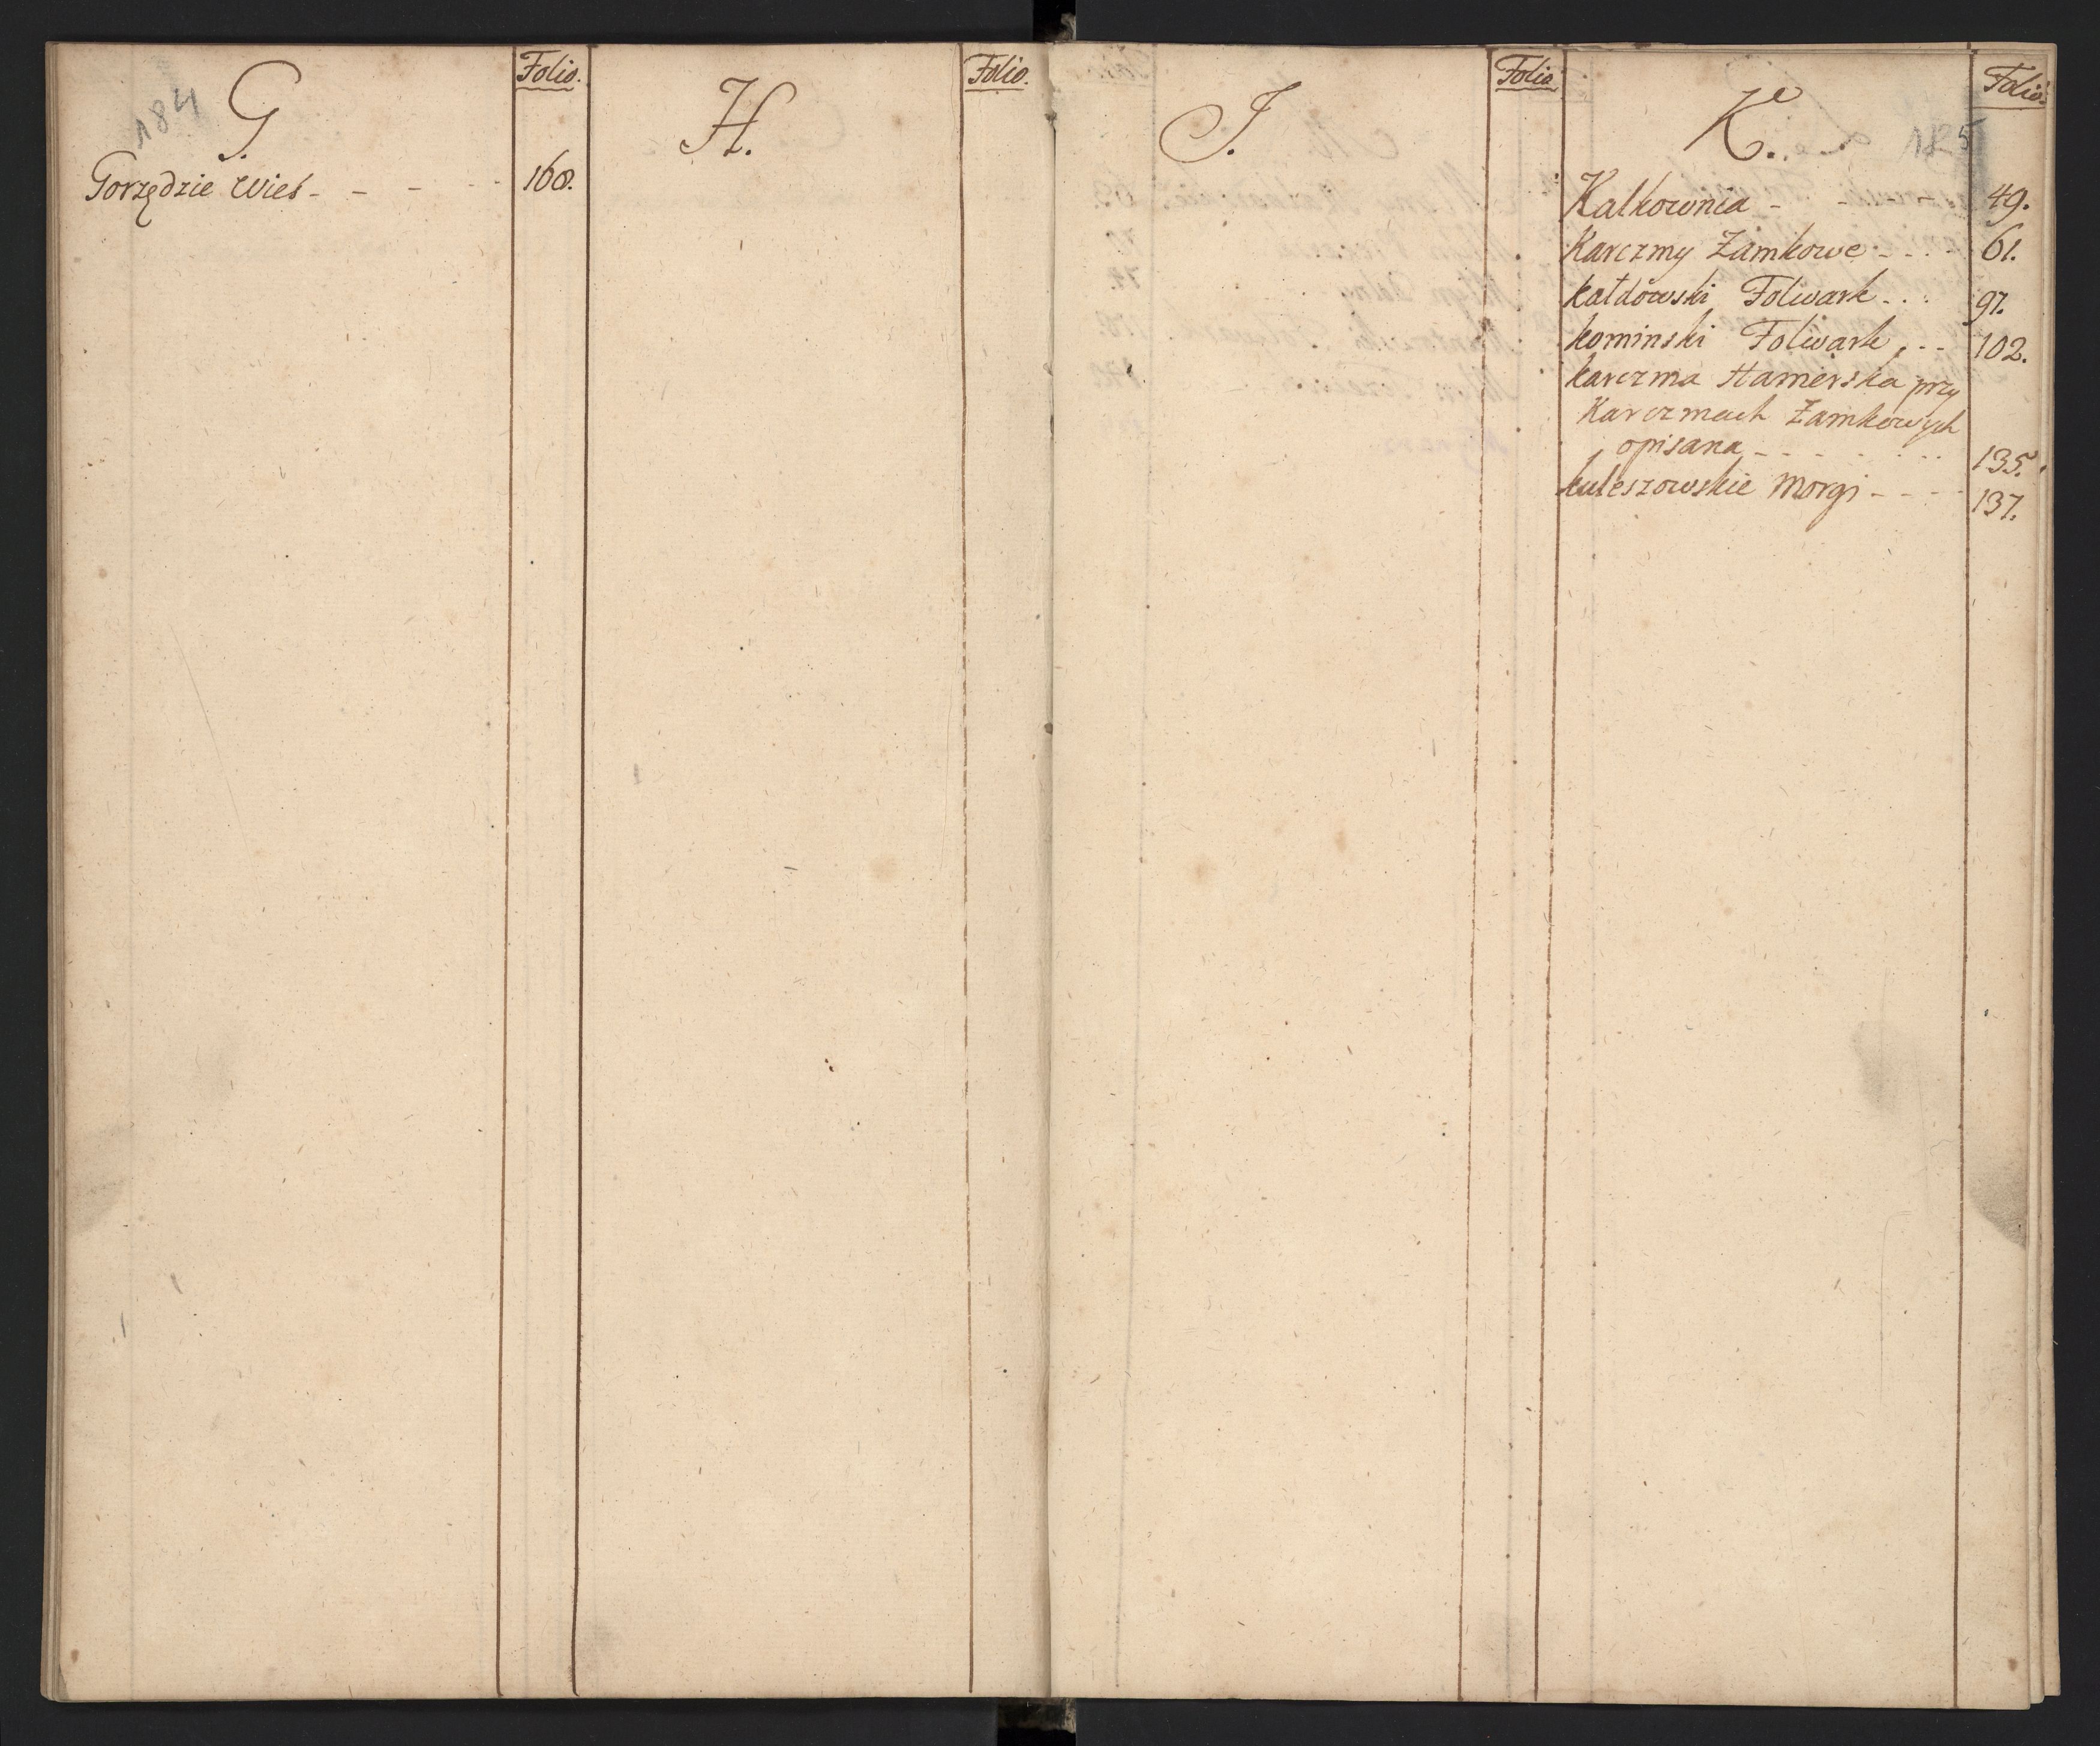 184
G.
Folio.
Gorzędzie Wieś - - - - 168.
H.
Folio.
I.
Folio
K.
185
Folio.
Kalkownia - - - - 49.
Karczmy Zamkowe - - - 61.
Kałdowski Folwark - . . 97.
Kominski Folwark, - - 102.
Karczma Hamerska przy
Karczmach Zamkowych
opisana - - - - - - 135.
Kuleszowskie Morgi - - - - 137.